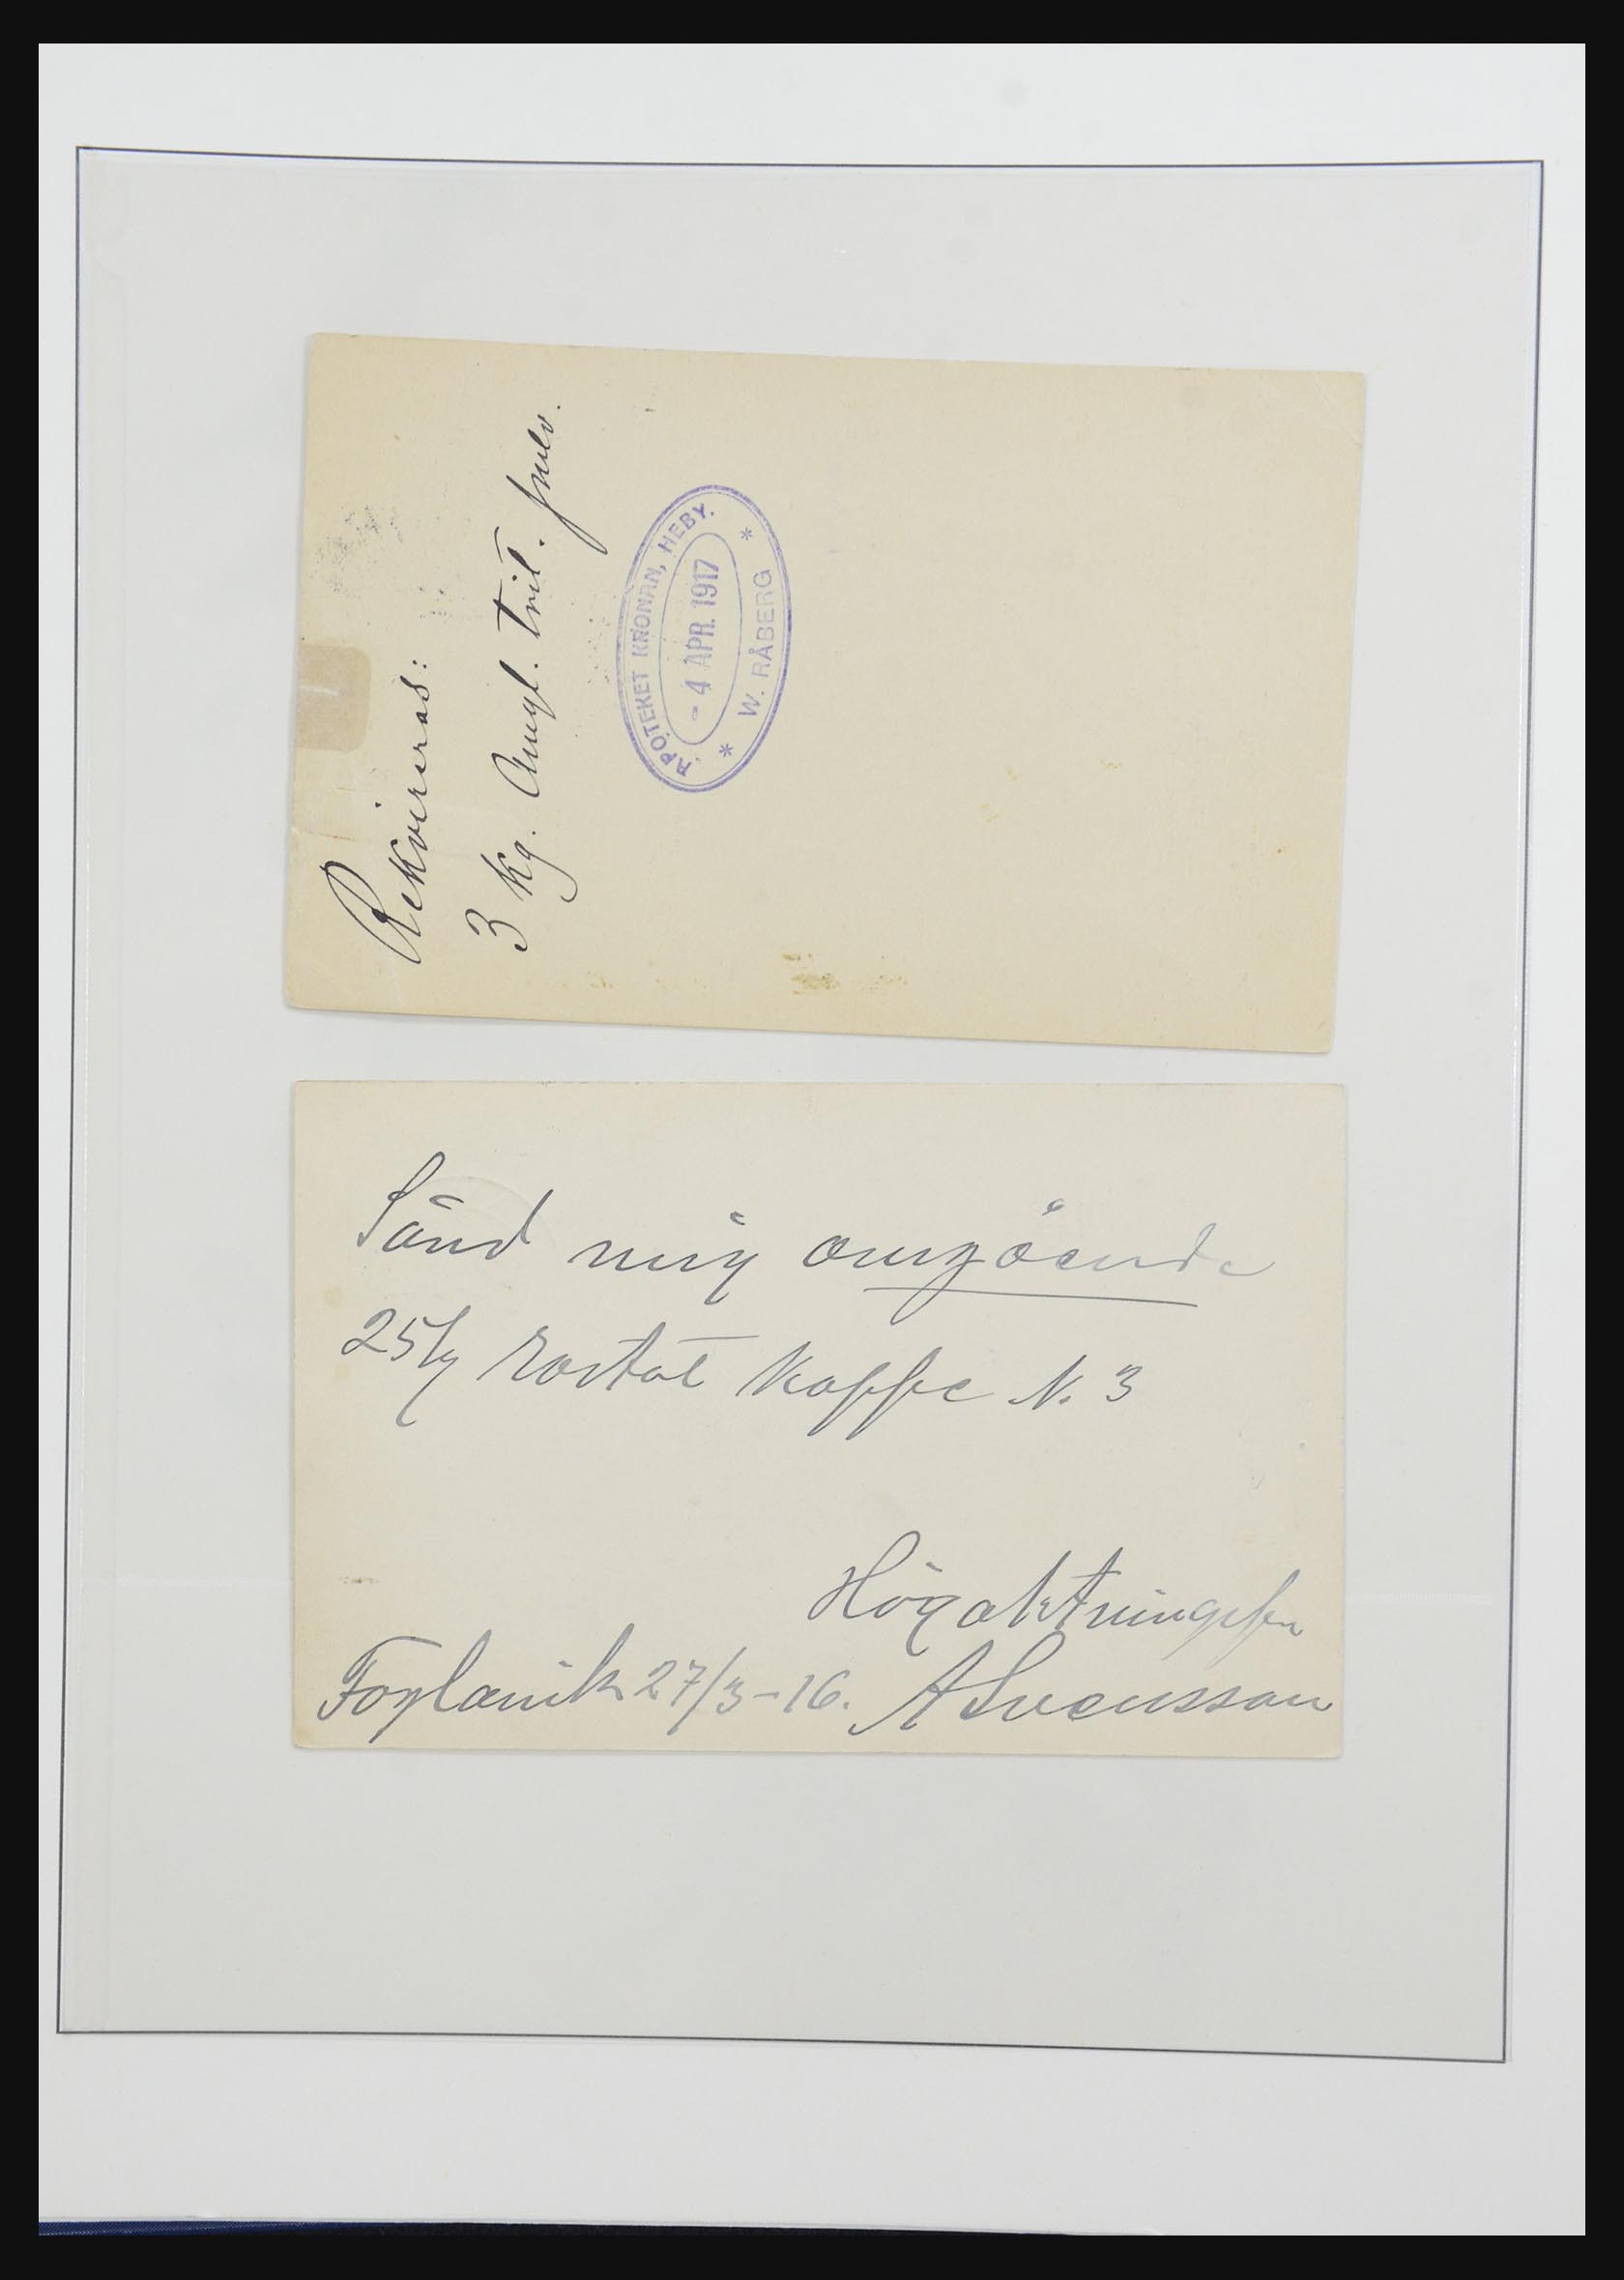 Rekvireras:
3 kg. Amyl. trit. pulv.
APOTEKET KRONAN, HEBY.
- 4 APR. 1917
* W. RÅBERG *
Sänd mig omgående
25 kg rostat kaffe N. 3
Högaktningsfu
Foglavik 27/3-16. A Svensson